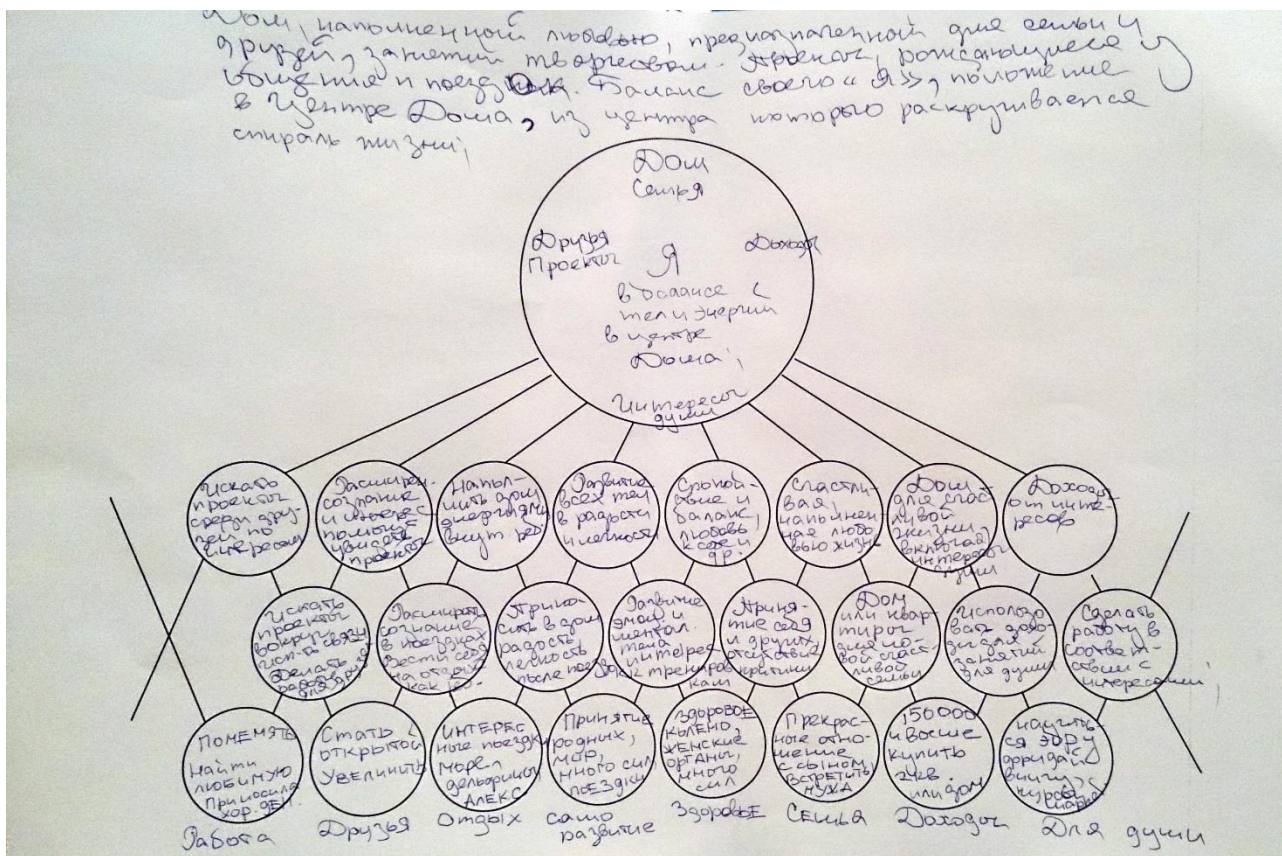 Дом, наполненный любовью, предназначенной для семьи и
друзей, занятий творчеством. Проекты, рождающиеся
общение и поездок. Баланс своего «Я», положение
в Центре Дома, из центра которого раскручивается
спираль жизни;
Дом
Семья
Друзья
Проекты
Доходы
Я
в балансе с
тел и энергий
в центре
Дома;
Интересы
души
Искать
проекты
среди дру-
зей по
интересам
Расширен.
сознание
и интерес
увидеть
проекты
Напол-
нить дом
энергиями
внут.
Развитие
всех тел
в радости
и легкости
Спокой-
ствие и
баланс,
любовь
к себе и
др.
Счастли-
вая,
наполнен-
ная любо-
вью жизнь
Дом
для счаст-
ливой
жизни,
включая
интересы
души
Доходы
от инте-
ресов
Искать
проекты
вокруг,
исп-ть связи
Делать
работу
для друзей
Расширять
сознание
в поездках
Вести себя
на отдыхе
как
Прино-
сить в дом
радость,
легкость
после поездок
Развитие
эмоц. и
ментал.
тела
интерес
к тренировкам
Приня-
тие себя
и других,
отсутствие
критики
Дом
или квар-
тиры
для но-
вой счаст-
ливой
семьи
Использо-
вать дохо-
ды для
занятий
для души
Сделать
работу в
соответ-
ствии с
интересами;
Поменять
Найти
любимую
Приносила
хор. ден.
Стать
открытой
Увеличить
Интерес
ные поездки
Море
дельфины
Алекс
Принятие
родных,
много сил
поездки
Здоровое
колено,
женские
органы,
много
сил
Прекрас-
ные отно-
шение
с сыном,
встретить
мужа
150000
и выше
купить
2кв.
или дом
научить-
ся ЭОРЦ
Работа
Друзья
Отдых
само
развитие
Здоровье
Семья
Доходы
Для души